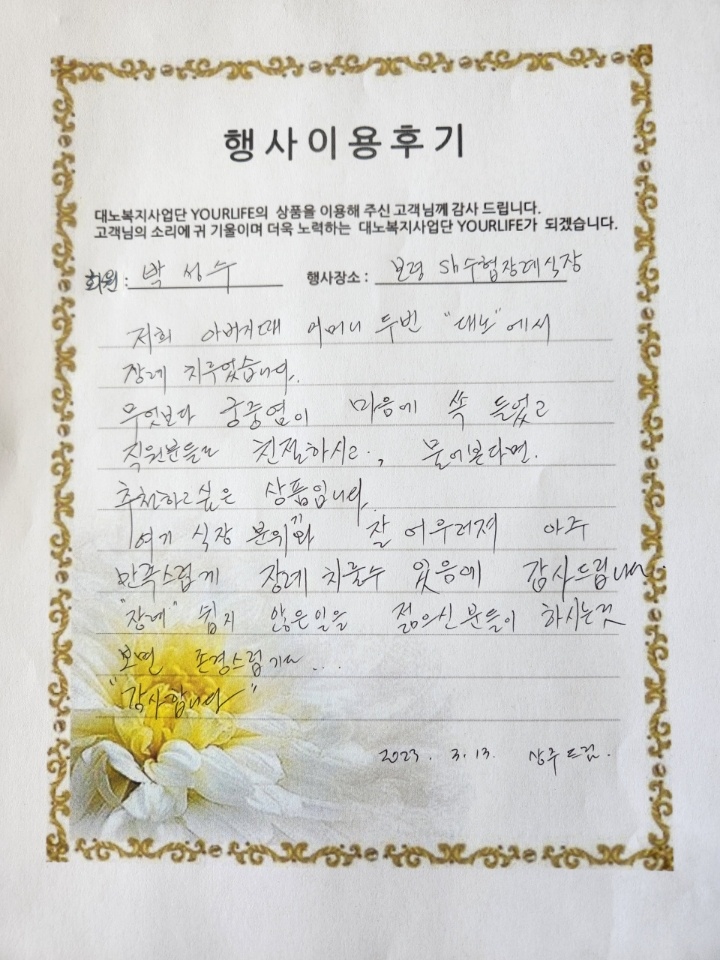 행사이용후기
대노복지사업단 YOURLIFE의 상품을 이용해 주신 고객님께 감사 드립니다.
고객님의 소리에 귀 기울이며 더욱 노력하는 대노복지사업단 YOURLIFE가 되겠습니다.
회원 : 박성수 행사장소 : 보령 Sh수협장례식장
저희 아버지때 어머니 두번 "대노"에서
장례 치루었습니다.
무엇보다 궁중염이 마음에 쏙 들었고
직원분들도 친절하시고, 물어본다면.
추천하고싶은 상품입니다.
여기 식장 분위기와 잘 어우러져 아주
만족스럽게 장례 치룰수 있음에 감사드립니다.
"장례" 쉽지 않은일을 젊으신분들이 하시는것
보면 존경스럽기도...
"감사합니다"
2023. 3. 13. 상주드림.